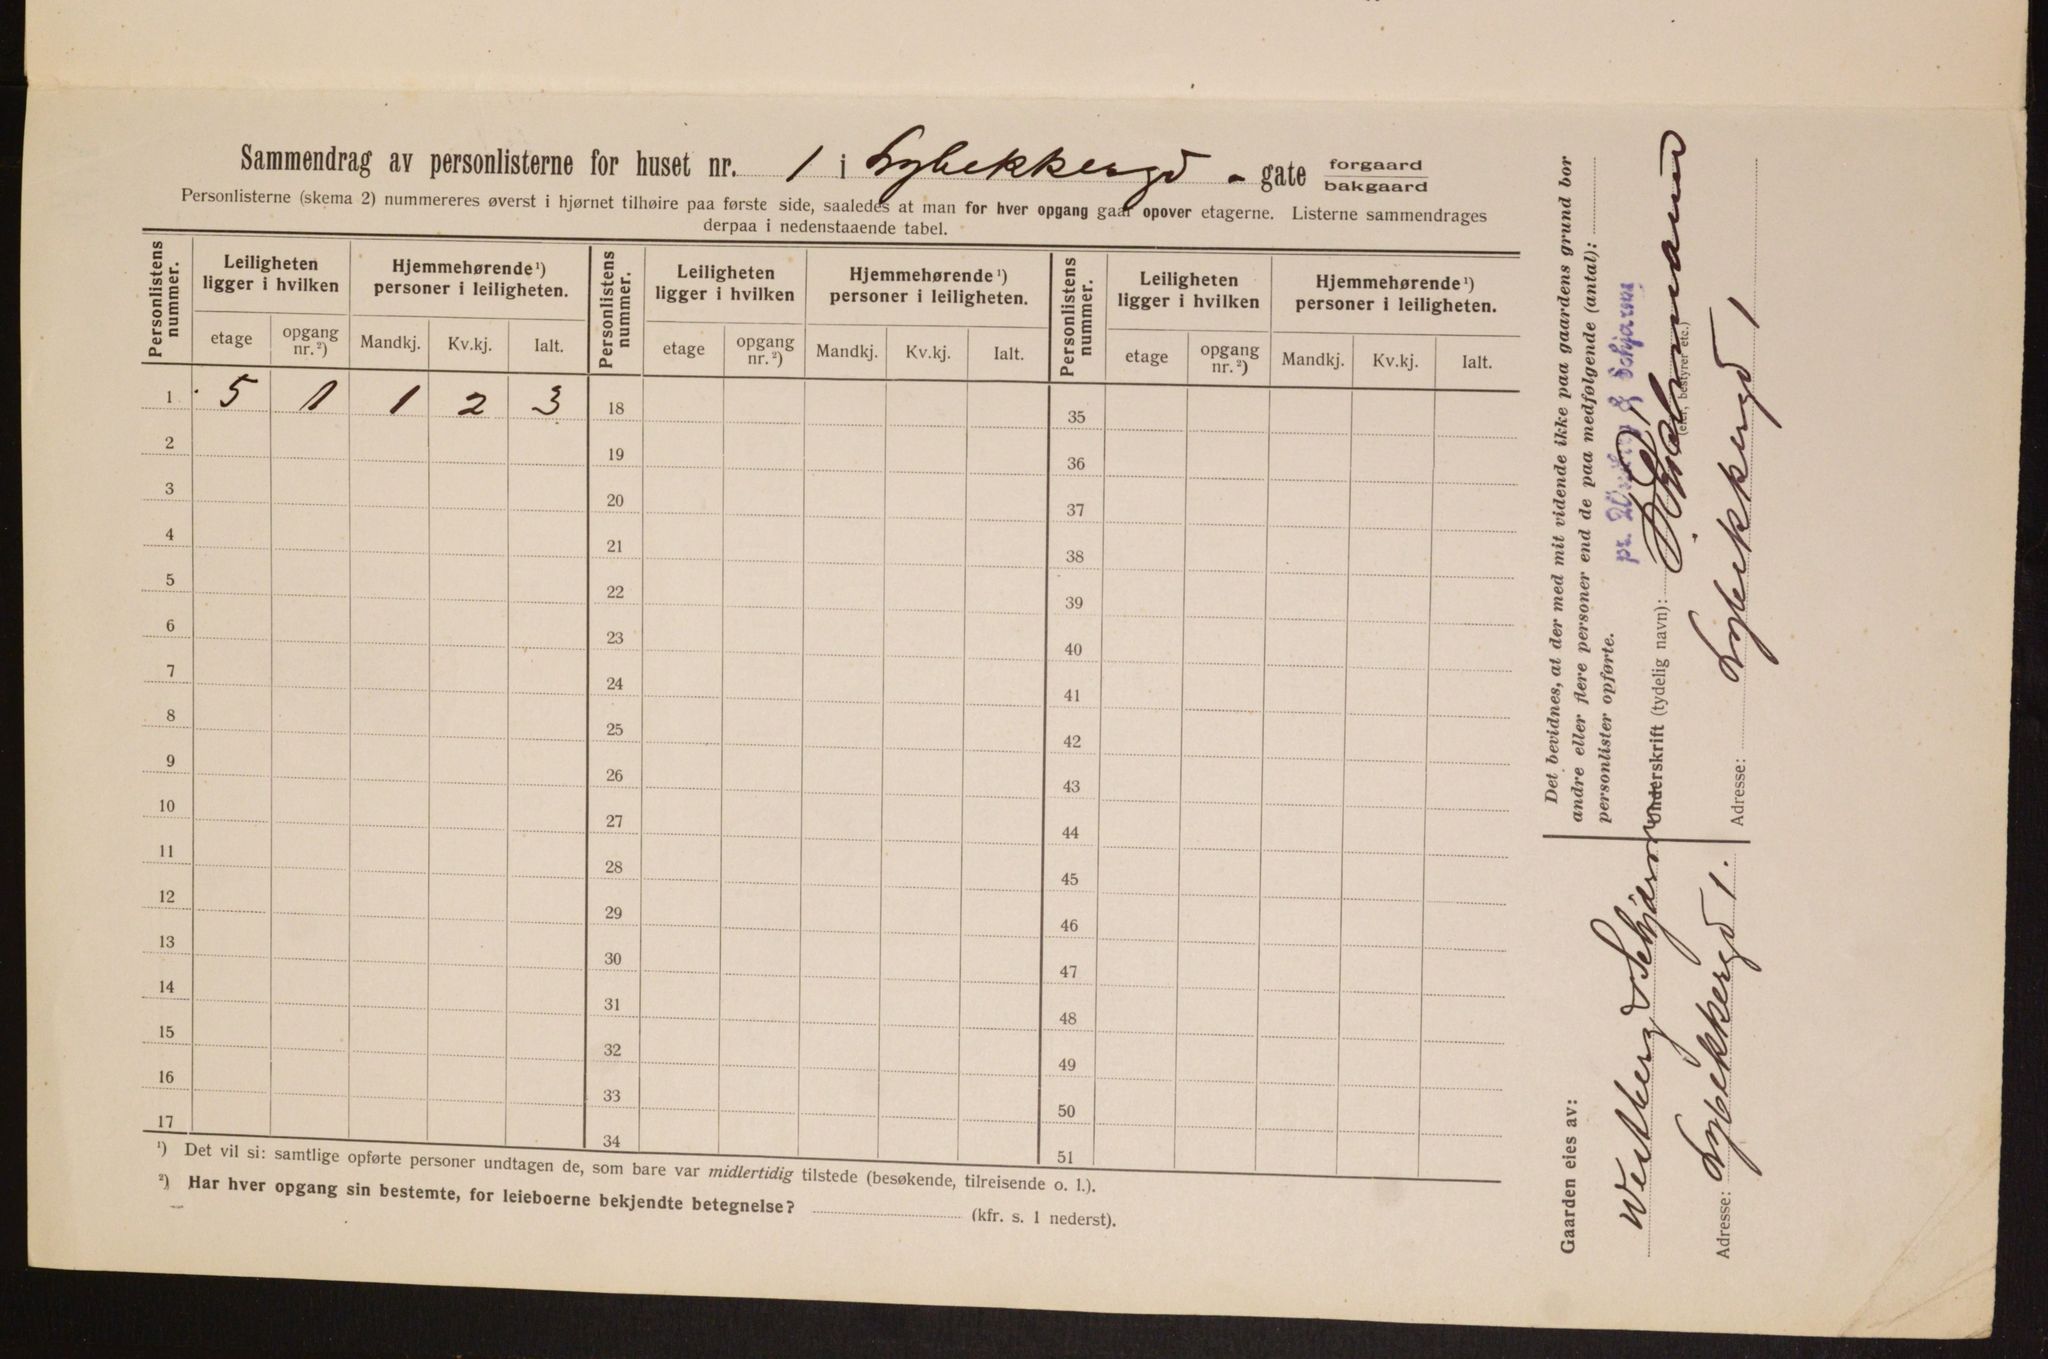 Sammendrag av personlisterne for huset nr. 1 i Lybekkergd - gate forgaard bakgaard
Personlisterne (skema 2) nummereres øverst i hjørnet tilhøire paa første side, saaledes at man for hver opgang gaar opover etagerne. Listerne sammendrages
derpaa i nedenstaaende tabel.
Personlistens nummer. Leiligheten ligger i hvilken Hjemmehørende ¹) personer i leiligheten. Personlistens nummer. Leiligheten ligger i hvilken Hjemmehørende ¹) personer i leiligheten. Personlistens nummer. Leiligheten ligger i hvilken Hjemmehørende ¹) personer i leiligheten.
etage opgang nr. ²) Mandkj. Kv.kj. Ialt. etage opgang nr. ²) Mandkj. Kv.kj. Ialt. etage opgang nr. ²) Mandkj. Kv.kj. Ialt.
1 5 1 1 2 3 18 35
2 19 36
3 20 37
4 21 38
5 22 39
6 23 40
7 24 41
8 25 42
9 26 43
10 27 44
11 28 45
12 29 46
13 30 47
14 31 48
15 32 49
16 33 50
17 34 51
¹) Det vil si: samtlige opførte personer undtagen de, som bare var midlertidig tilstede (besøkende, tilreisende o. l.).
²) Har hver opgang sin bestemte, for leieboerne bekjendte betegnelse? (kfr. s. 1 nederst).
Gaarden eies av:
Westberg & Schjarm
Adresse: Lybekkergd 1.
Det bevidnes, at der med mit vidende ikke paa gaardens grund bor
andre eller flere personer end de paa medfølgende (antal):
personlister opførte.
pr. & Schjarm
Underskrift (tydelig navn):
(eier, bestyrer etc.)
Adresse: Lybekkergd 1